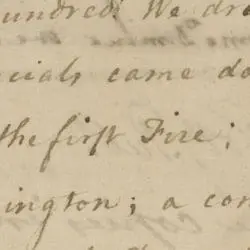 undred! We dra
cials came do
the first Fire;
ington; a con